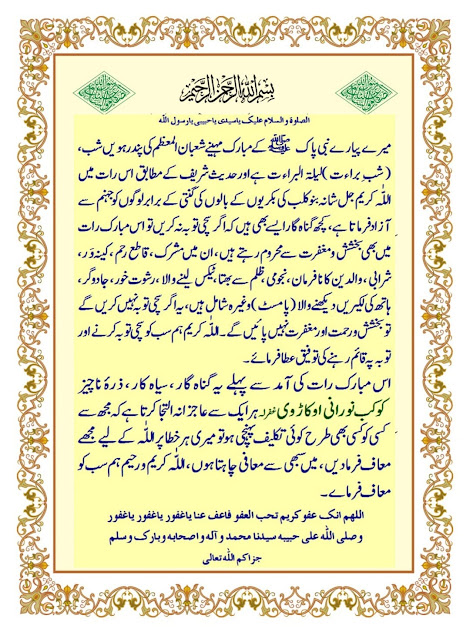 بسم اللہ الرحمن الرحیم
الصلوۃ والسلام علیک یاسیدی یاحبیبی یارسول اللہ
میرے پیارے نبی پاک ﷺ کے مبارک مہینے شعبان المعظم کی پندرہویں شب،
(شب براءت) لیلۃ البراءت ہے اور حدیث شریف کے مطابق اس رات میں
اللہ کریم جل شانہ بنو کلب کی بکریوں کے بالوں کی گنتی کے برابر لوگوں کو جہنم سے
آزاد فرماتا ہے، کچھ گناہ گار ایسے بھی ہیں کہ اگر سچی توبہ نہ کریں تو اس مبارک رات
میں بھی بخشش و مغفرت سے محروم رہتے ہیں، ان میں مشرک، قاطع رحم، کینہ ور،
شرابی، والدین کا نافرمان، نجومی، ظلم سے بھتا، ٹیکس لینے والا، رشوت خور، جادوگر،
ہاتھ کی لکیریں دیکھنے والا (پامسٹ) وغیرہ شامل ہیں، یہ اگر سچی توبہ نہیں کریں گے
تو بخشش و رحمت اور مغفرت نہیں پائیں گے۔ اللہ کریم ہم سب کو سچی توبہ کرنے اور
توبہ پہ قائم رہنے کی توفیق عطا فرمائے۔
اس مبارک رات کی آمد سے پہلے یہ گناہ گار، سیاہ کار، ذرۂ ناچیز
کوکب نورانی اوکاڑوی غفرلہ ہر ایک سے عاجزانہ التجا کرتا ہے کہ مجھ سے
کسی کو کسی بھی طرح کوئی تکلیف پہنچی ہو تو میری ہر خطا پر اللہ کے لیے مجھے
معاف فرمادیں، میں سبھی سے معافی چاہتا ہوں، اللہ کریم و رحیم ہم سب کو
معاف فرماے۔
اللهم انک عفو کریم تحب العفو فاعف عنا یاغفور یاغفور یاغفور
و صلی اللہ علی حبیبہ سیدنا محمد و آلہ واصحابہ وبارک وسلم
جزاکم اللہ تعالی